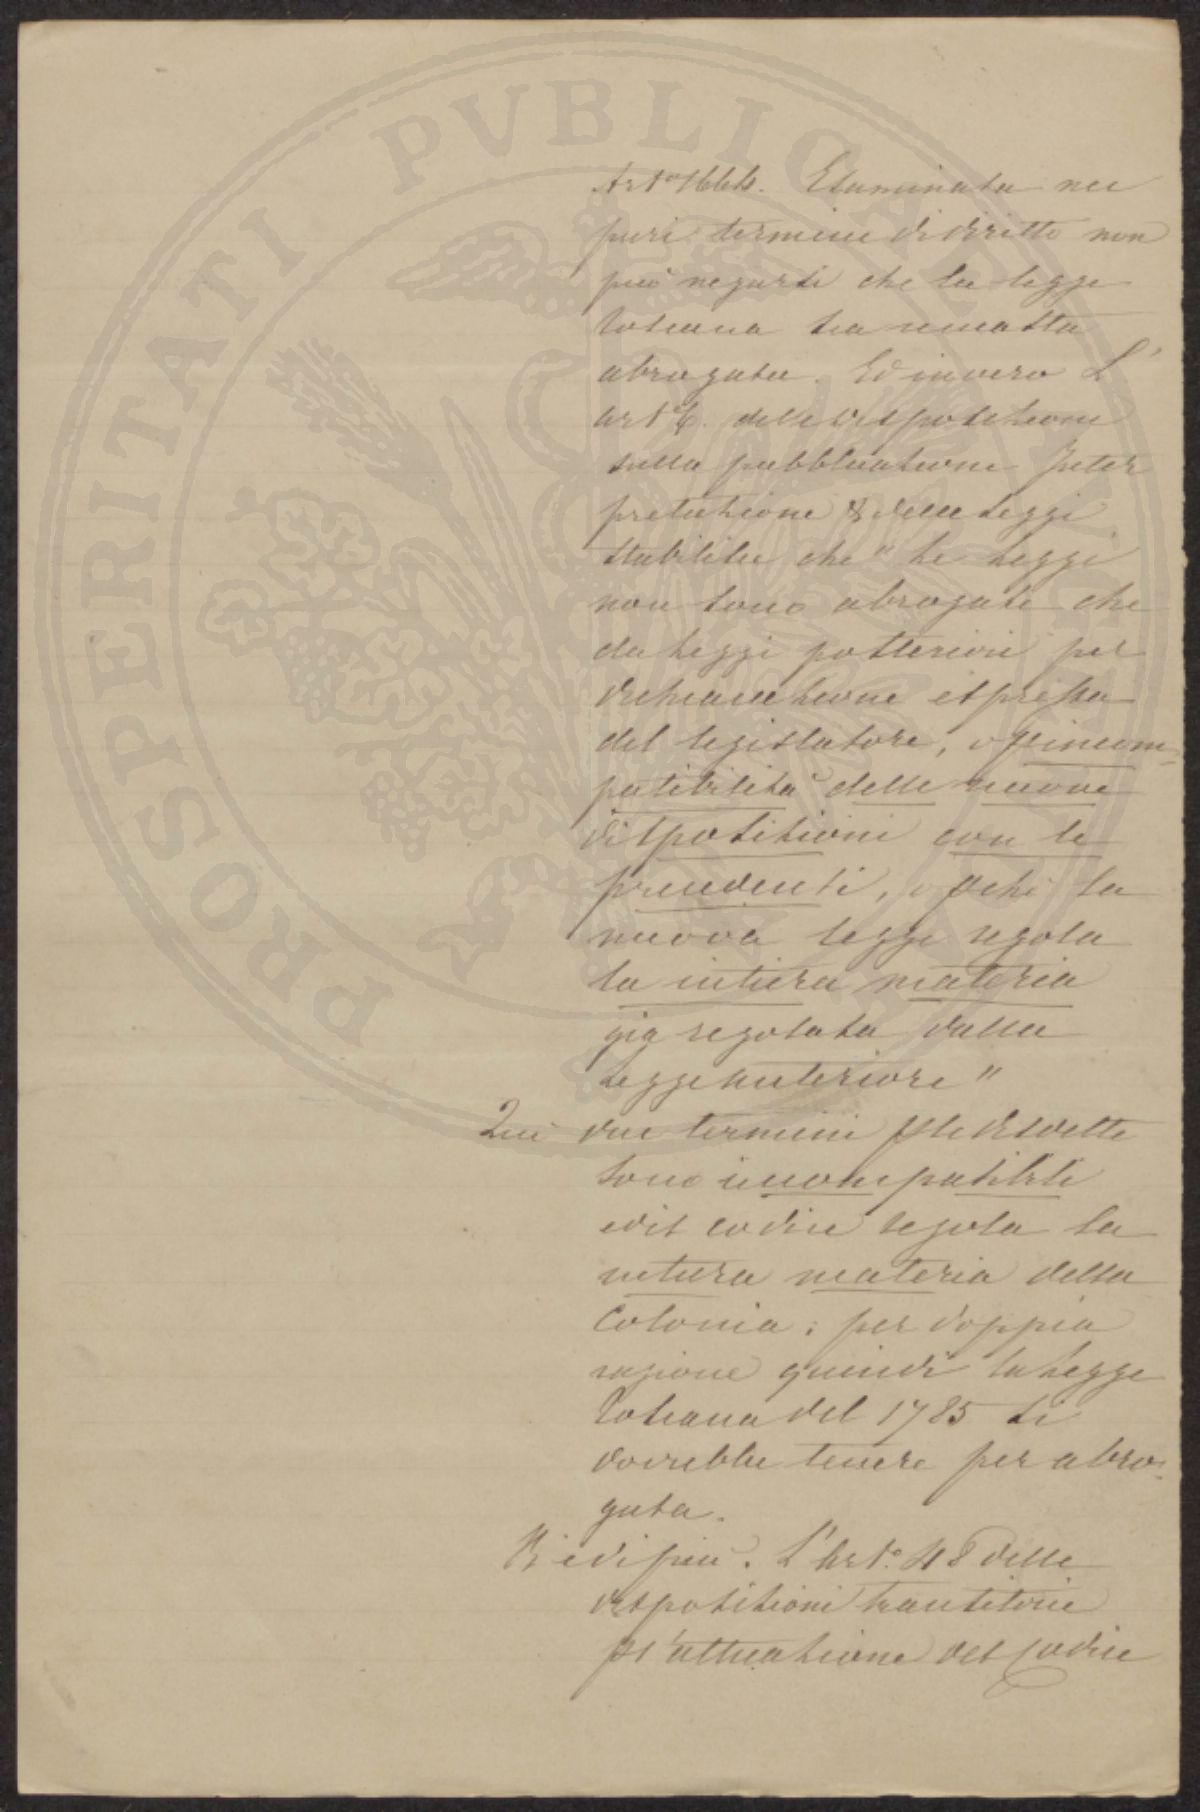 PROSPERITATI PVBLICAE
Art.o 1664. Esaminata nei
puri termini di diritto non
può negarsi che la legge
Toscana sia rimasta
abrogata. Ed invero L'
art.o 5. delle disposizioni
sulla pubblicazione Inter
pretazione & delle Leggi
stabilisce che " Le Leggi
non sono abrogate che
da Leggi posteriori per
dichiarazione espressa
del legislatore, o p incom=
patibilità delle nuove
disposizioni con le
precedenti, o p chè la
nuova legge regola
la intiera materia
già regolata dalla
Legge anteriore "
Qui due termini
sono incompatibili
ed il codice regola la
intiera materia della
Colonia; per doppia
ragione quindi la Legge
Toscana del 1785 si
dovrebbe tenere per abro=
gata.
Vi è di più. L'Art.o 48 delle
disposizioni transitorie
p l'attuazione del Codice